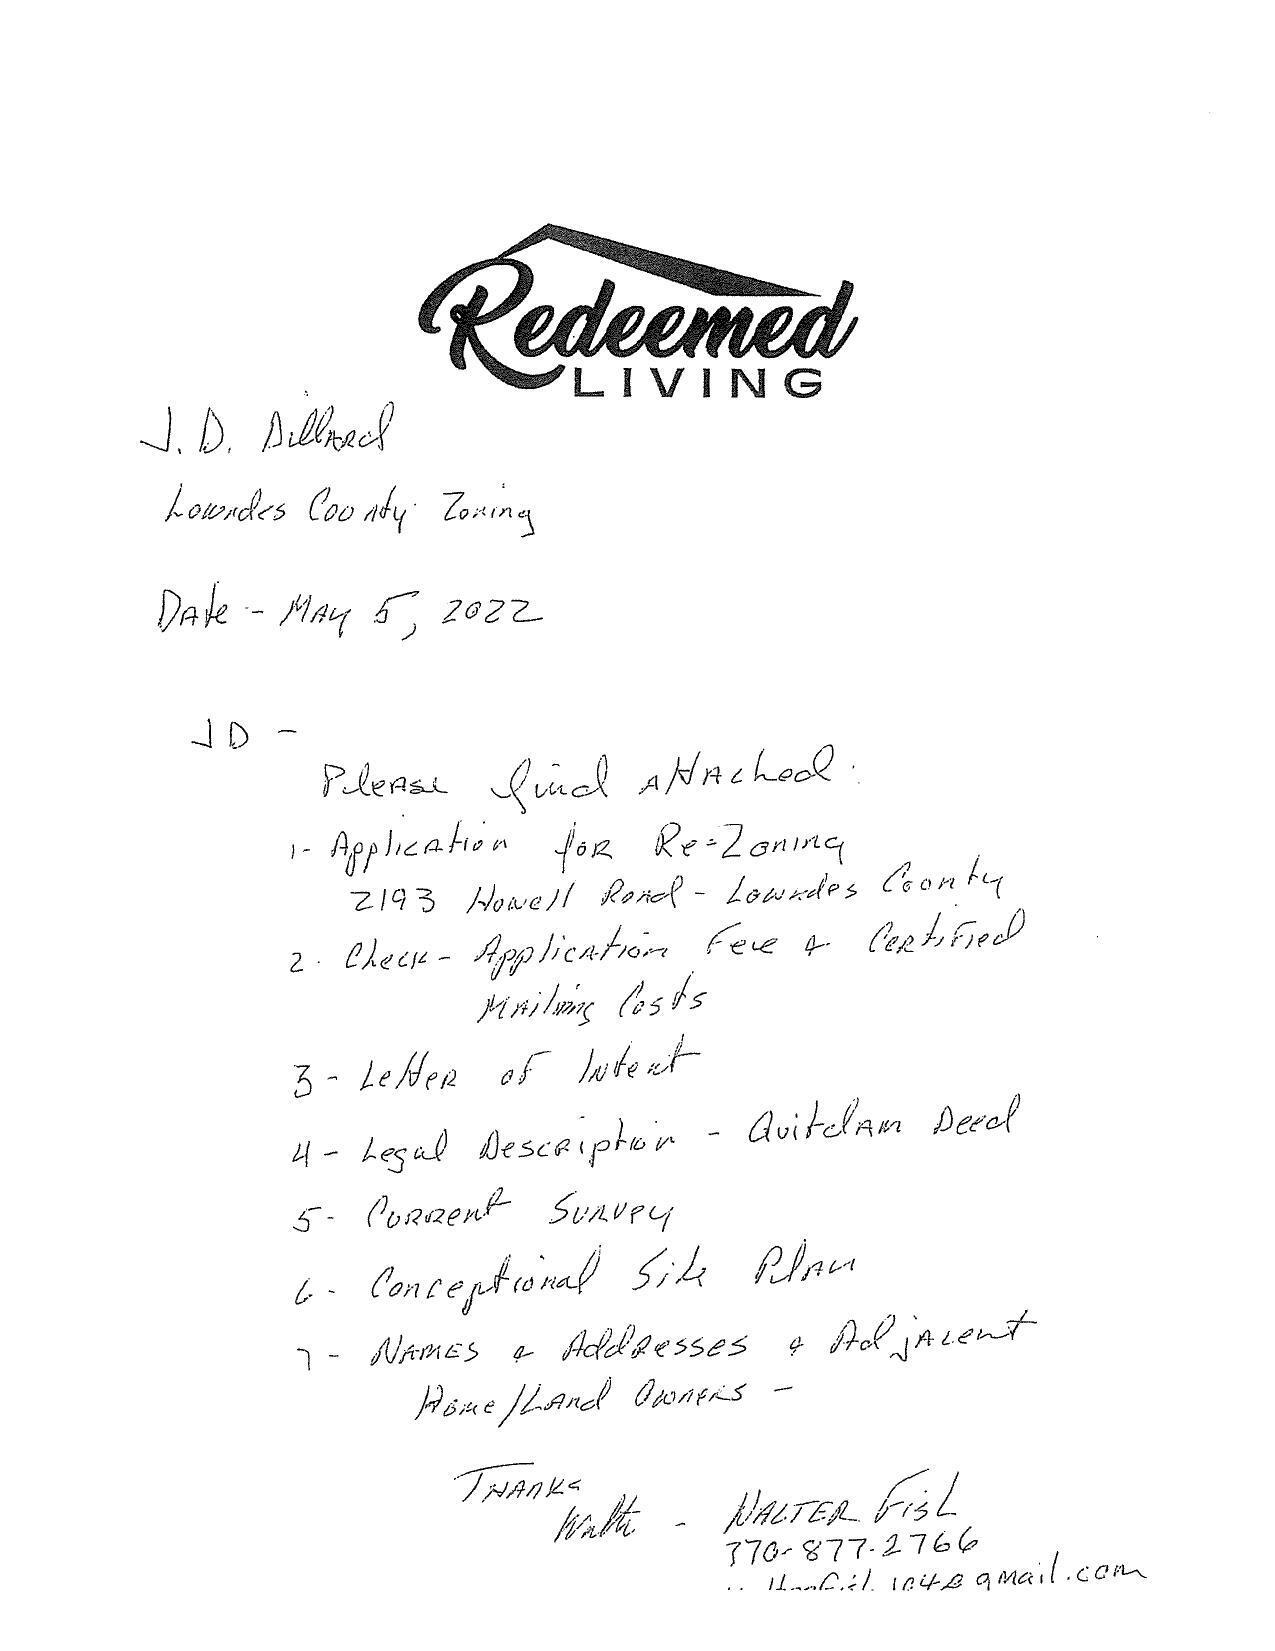 Redeemed
LIVING
J. D. Dillard
Lowndes County Zoning
Date - May 5, 2022
JD -
Please find attached
1- Application for Re-Zoning
2193 Howell Road - Lowndes County
2. Check - Application Fee & Certified
Mailing Costs
3 - Letter of Intent
4 - Legal Description - Quitclam Deed
5 - Current Survey
6 - Conceptional Site Plan
7 - Names & Addresses & Adjacent
Home/Land Owners -
Thanks
Walter - Walter Fish
770-877-2766
104@gmail.com